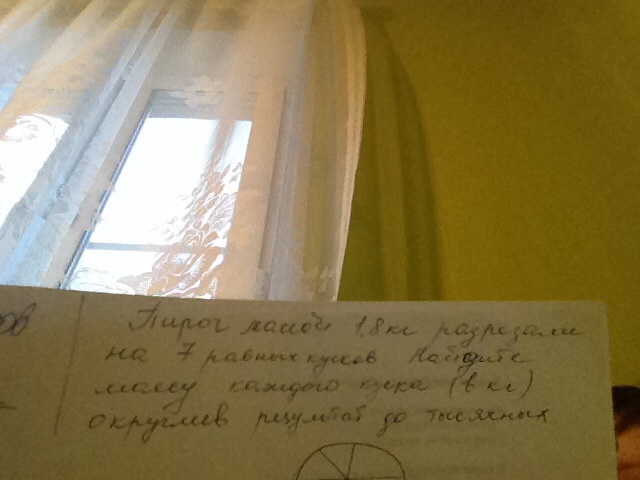 ов
Пирог массой 1,8кг разрезали
на 7 равных кусков Найдите
массу каждого куска (в кг)
округлив результат до тысячных